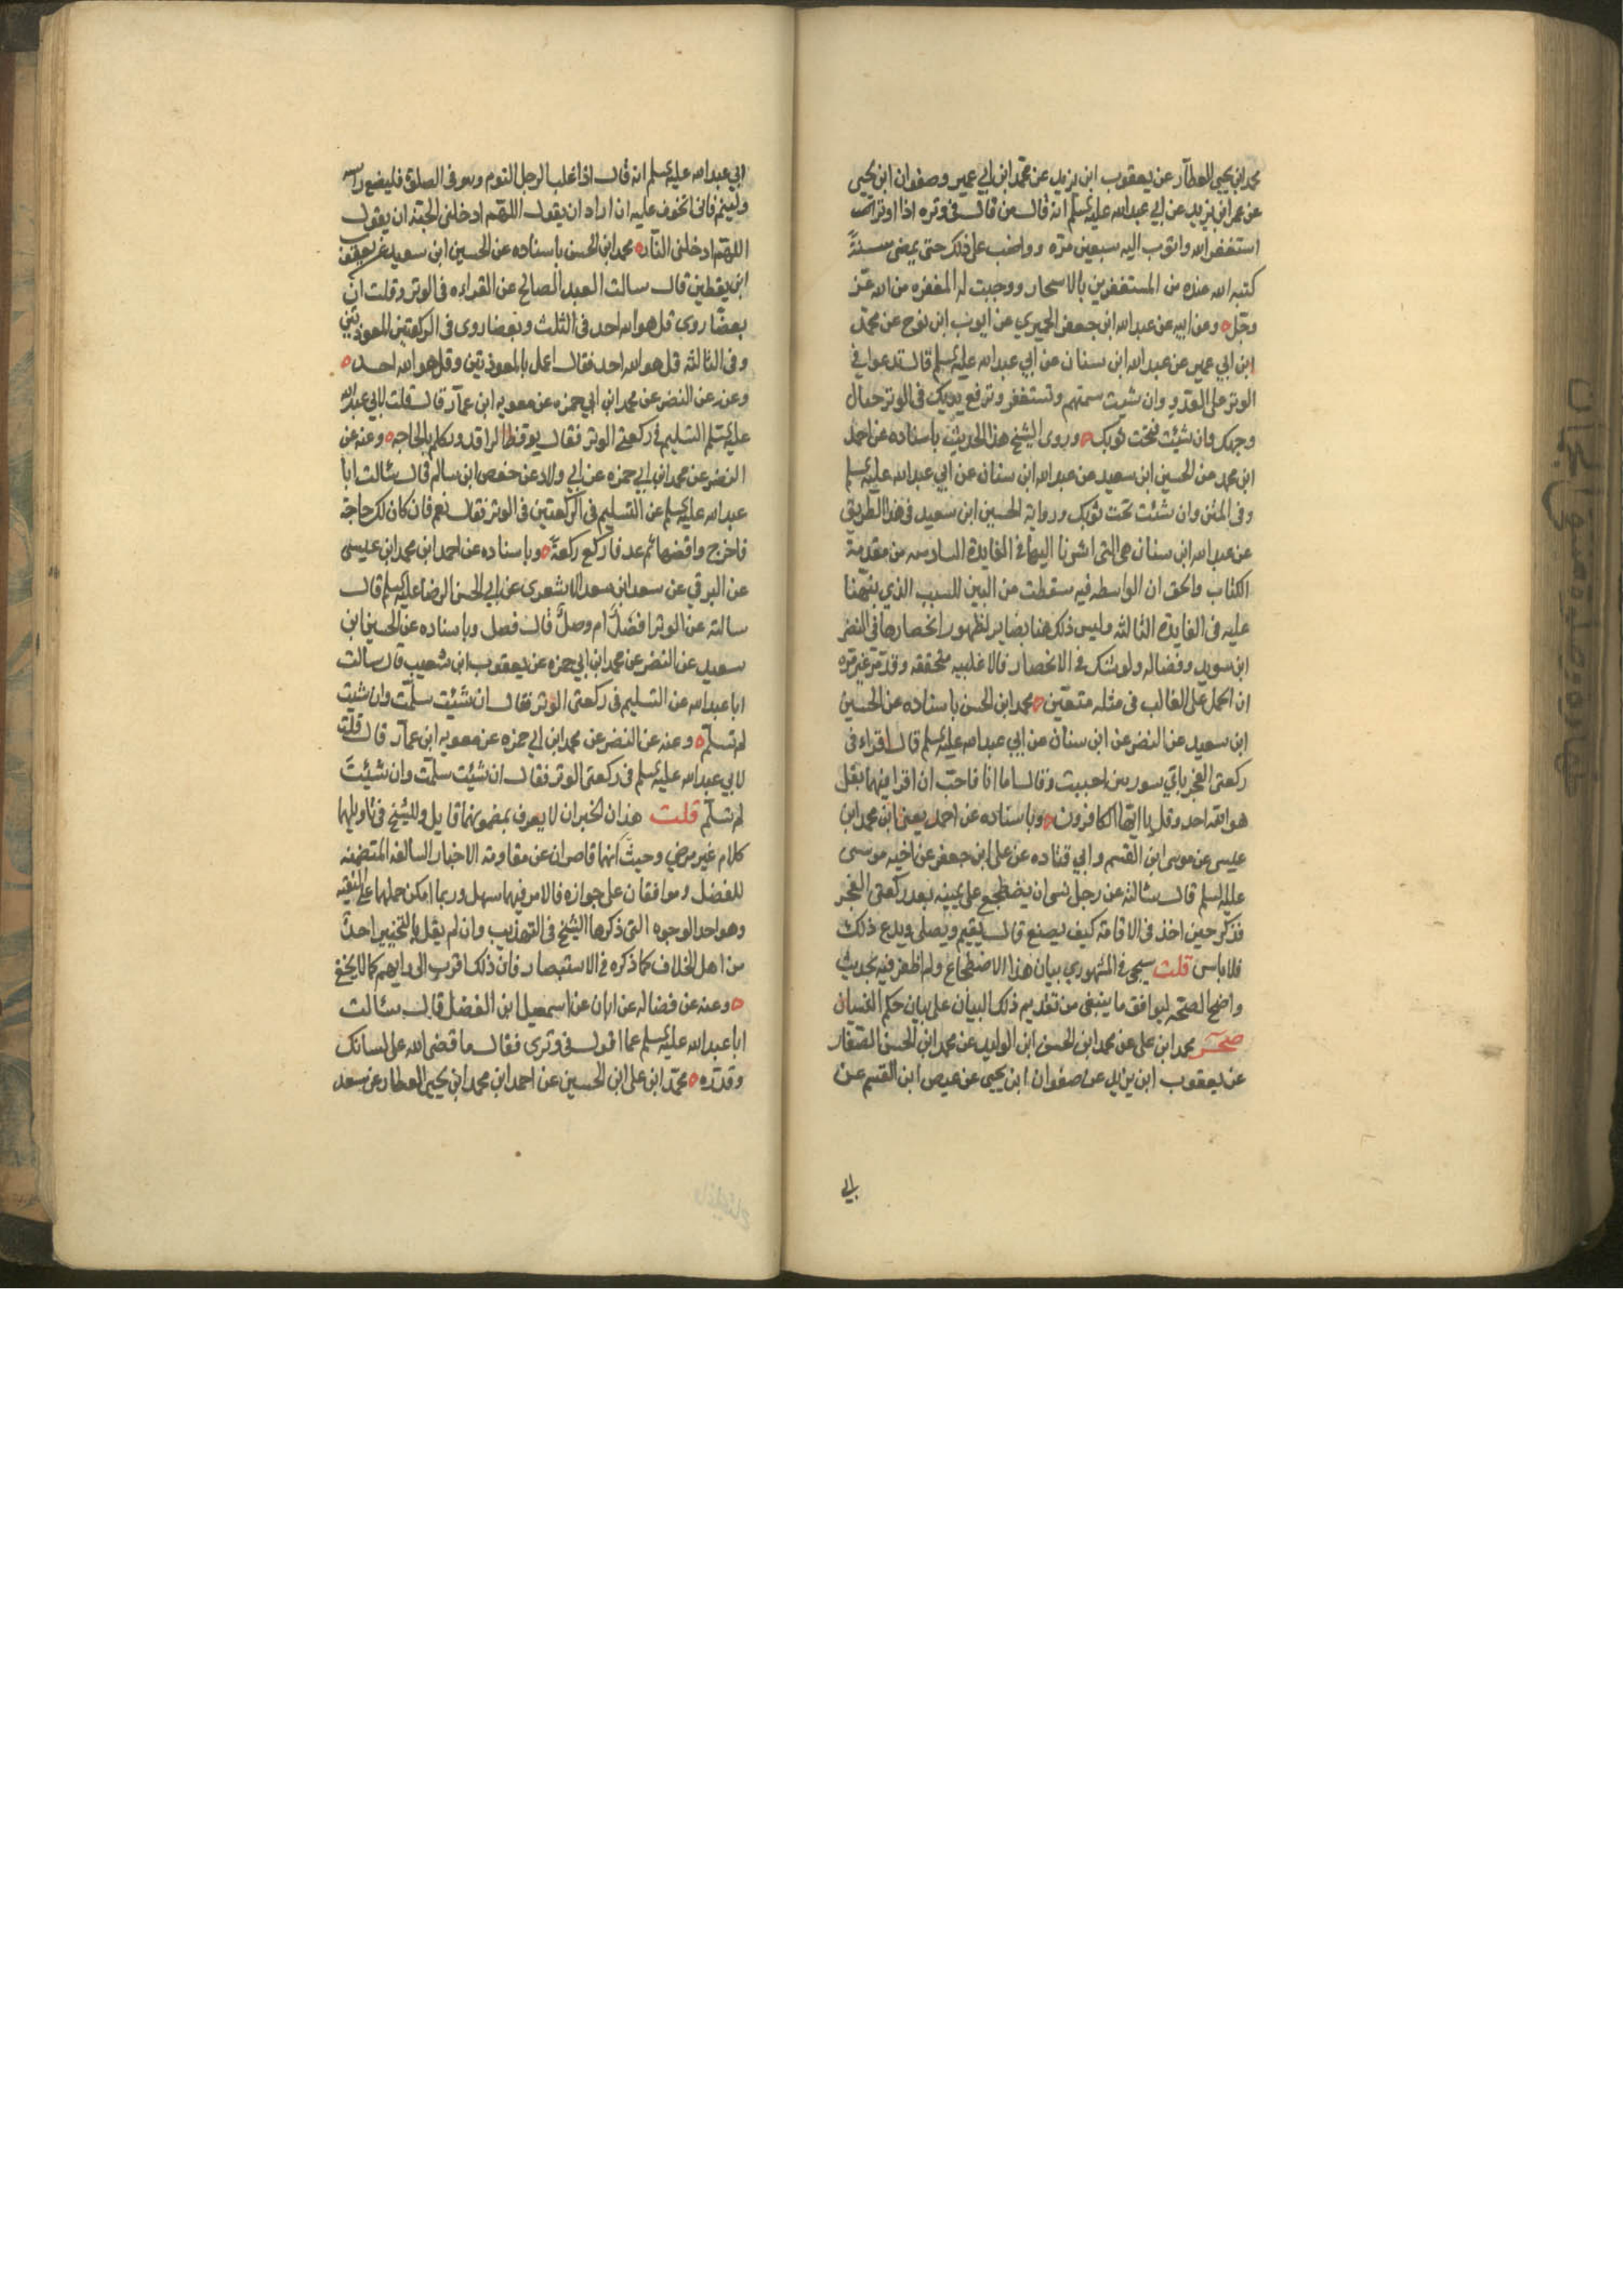 محمد ابن يحيى العطار عن يعقوب ابن يزيد عن محمد ابن ابي عمير وصفوان ابن يحيى
عن عمر ابن يزيد عن ابي عبدالله عليه السلم انه قال من قال في وتره اذا اوتر
استغفر الله واتوب اليه سبعين مرّه وواضب على ذلك حتى يمضى سنةً
كتبه الله عنده من المستغفرين بالاسحار ووجبت له المغفره من الله عزّ
وجلّ ه وعن ابيه عن عبدالله ابن جعفر الحميري عن ايوب ابن نوح عن محمد
ابن ابي عمير عن عبدالله ابن سنان عن ابي عبدالله عليه السلم قال تدعوا في
الوتر على العدو وان شئت سميتهم وتستغفر وترفع يديك في الوتر حيال
وجهك وان شئت فتحت ثوبك ه وروى الشيخ هذا الحديث باسناده عن احمد
ابن محمد عن الحسين ابن سعيد عن عبدالله ابن سنان عن ابي عبدالله عليه السلم
وفي المتن وان شئت تحت ثوبك ورواية الحسين ابن سعيد في هذا الطريق
عن عبدالله ابن سنان هي التى اشرنا اليها في الفايدة السادسه من مقدمة
الكتاب والحق ان الواسطه فيه سقطت من البين للسبب الذي نبهنا
عليه في الفايدة الثالثه وليس ذلك هنا بضاير لظهور انحصارها في النضر
ابن سويد وفضاله ولو شك في الانحصار فالاغلبيه متحققه وقد مرّ غير مره
ان الحمل على الغالب في مثله متعيّن ه محمد ابن الحسن باسناده عن الحسين
ابن سعيد عن النضر عن ابن سنان عن ابي عبدالله عليه السلم قال اقراء في
ركعتى الفجر باي سورتين احببت وقال اما انا فاحبّ ان اقرا فيهما بقل
هو الله احد وقل يا ايها الكافرون ه وباسناده عن احمد يعنى ابن محمد ابن
عيسى عن موسى ابن القسم وابي قتاده عن على ابن جعفر عن اخيه موسى
عليه السلم قال سئالته عن رجل نسى ان يضطجع على يمينه بعد ركعتى الفجر
فذكر حين اخذ في الاقامة كيف يصنع قال يقيم ويصلى ويدع ذلك
فلا باس قلت سيجى في المشهوري بيان هذا الاضطجاع ولم اظفر فيه بحديث
واضح الصحه ليوافق ما ينبغي من تقديم ذلك البيان على بيان حكم النسيان
صحر محمد ابن على عن محمد ابن الحسن ابن الوليد عن محمد ابن الحسن الصفار
عن يعقوب ابن يزيد عن صفوان ابن يحيى عن عيص ابن القسم عن
ابي
ابي عبدالله عليه السلم انه قال اذا غلب الرجل النوم وهو في الصلوة فليضع راسه
ولينم فانى اتخوف عليه ان اراد ان يقول اللهم ادخلنى الجنة ان يقول
اللهم ادخلنى النار ه محمد ابن الحسن باسناده عن الحسين ابن سعيد عن يعقوب
ابن يقطين قال سالت العبد الصالح عن القراءه في الوتر وقلت ان
بعضًا روى قل هو الله احد في الثلث وبعضا روى في الركعتين المعوذتين
وفي الثالثه قل هو الله احد فقال اعمل بالمعوذتين وقل هو الله احد ه
وعنه عن النضر عن محمد ابن ابي حمزه عن معويه ابن عمار قال قلت لابي عبدالله
عليه السلم التسليم في ركعتى الوتر فقال يوقظ الراقد وتكلم بالحاجه ه وعنه عن
النضر عن محمد ابن ابي حمزه عن ابي ولاد عن حفص ابن سالم قال سئالت ابا
عبدالله عليه السلم عن التسليم في الركعتين في الوتر فقال نعم فان كان لك حاجة
فاخرج واقضها ثم عد فاركع ركعةً ه وباسناده عن احمد ابن محمد ابن عيسى
عن البرقي عن سعد ابن سعد الاشعرى عن ابي الحسن الرضا عليه السلم قال
سالته عن الوتر افضلٌ ام وصلٌ قال فصل وباسناده عن الحسين ابن
سعيد عن النضر عن محمد ابن ابي حمزه عن يعقوب ابن شعيب قال سالت
ابا عبدالله عن التسليم في ركعتى الوتر فقال ان شئت سلّمت وان شئت
لم تسلّم ه وعنه عن النضر عن محمد ابن ابي حمزه عن معويه ابن عمار قال قلت
لابي عبدالله عليه السلم في ركعتى الوتر فقال ان شئت سلّمت وان شئت
لم تسلّم قلت هذان الخبران لا يعرف بمضمونهما قايل وللشيخ في تاويلهما
كلام غير مرضي وحيث انهما قاصران عن مقاومة الاخبار السالفه المتضمنه
للفصل وموافقان على جوازه فالامر فيهما سهل وربما امكن حملهما على التقيه
وهو احد الوجوه التى ذكرها الشيخ في التهذيب وان لم يقل بالتخيير احدٌ
من اهل الخلاف كما ذكره في الاستبصار فان ذلك اقرب الى رايهم كما لا يخفى
ه وعنه عن فضاله عن ابان عن اسمعيل ابن الفضل قال سئالت
ابا عبدالله عليه السلم عما اقول في وترى فقال ما قضى الله على لسانك
وقدّره ه محمد ابن على ابن الحسين عن احمد ابن محمد ابن يحيى العطار عن سعد